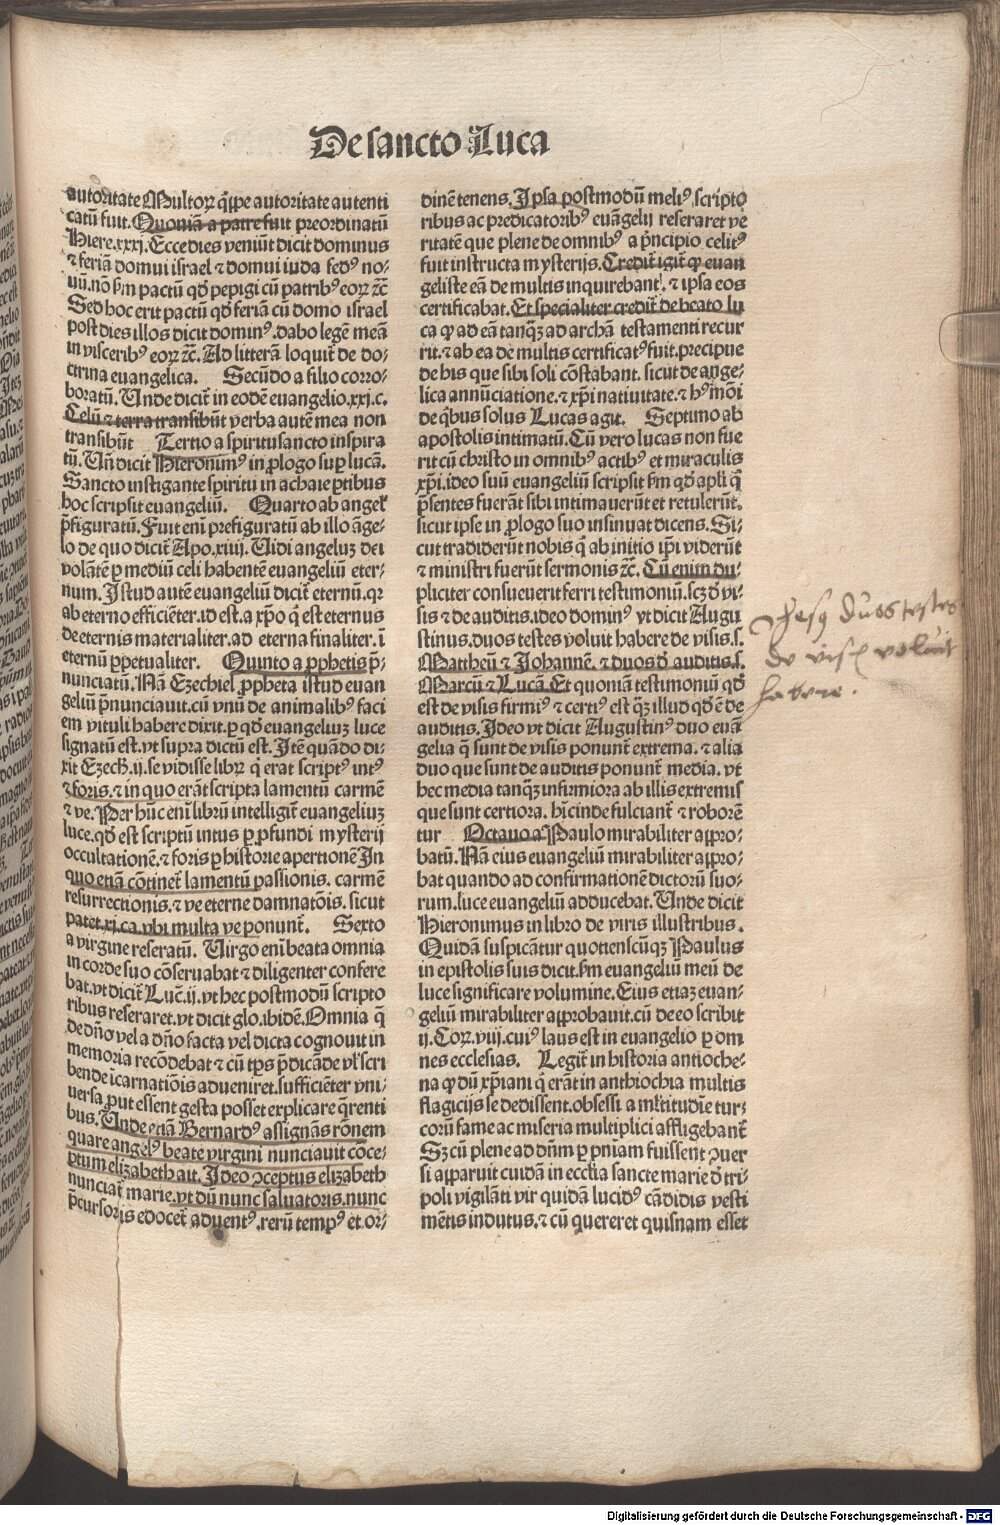 De sancto Luca
autoritate Multoꝝ q̄ꝑpe autoritate autenti
catū fuit. Quoniā a patre fuit preordinatū
Hiere.xxxj. Ecce dies veniūt dicit dominus
⁊ feriā domui israel ⁊ domui iuda fedꝰ no⸗
uū. nō ẜm pactū qd̓ pepigi cū patribꝰ eoꝝ ⁊c̄
Sed hoc erit pactū qd̓ feriā cū domo israel
post dies illos dicit dominꝰ. dabo legē meā
in visceribꝰ eoꝝ ⁊c̄. Ad litterā loquit̄ de do⸗
ctrina euangelica. Secūdo a filio corro⸗
boratū. Unde dicit̄ in eodē euangelio.xxj.c.
Celū ⁊ terra transibūt verba autē mea non
transibūt Tertio a spiritusancto inspira
tū. Uñ dicit Hieronimꝰ in ꝓlogo suꝑ lucā.
Sancto instigante spiritu in achaie ꝑtibus
hoc scripsit euangeliū. Quarto ab angel̓
p̄figuratū. Fuit eni prefiguratū ab illo āge⸗
lo de quo dicit̄ Apo.xiiij. Uidi angeluꝫ dei
volātē ꝑ mediū celi habentē euangeliū eter⸗
num. Istud autē euangeliū dicit̄ eternū. qꝛ
ab eterno efficiēter. id est. a xp̄o q̄ est eternus
de eternis materialiter. ad eterna finaliter. ī
eternū ꝑpetualiter. Quinto a ꝓphetis p̄⸗
nunciatū. Nā Ezechiel ꝓpheta istud euan
geliū p̄nunciauit. cū vnū de animalibꝰ faci
em vituli habere dixit. ꝑ qd̓ euangeluꝫ luce
signatū est. vt supra dictū est. Itē quādo di⸗
xit Ezech̄.ij. se vidisse libꝝ q̄ erat scriptꝰ intꝰ
⁊ foris. ⁊ in quo erāt scripta lamentū carmē
⁊ ve. Per hūc eni librū intelligit̄ euangeliuꝫ
luce. qd̓ est scriptū intus ꝑ ꝓfundi mysterij
occultationē. ⁊ foris ꝑ historie apertionē In
quo etiā cōtinet̄ lamentū passionis. carmē
resurrectionis. ⁊ ve eterne damnatōis. sicut
patet.xj.ca. vbi multa ve ponunt̄. Sexto
a virgine reseratū. Uirgo eni beata omnia
in corde suo cōseruabat ⁊ diligenter confere
bat. vt dicit̄ Luc̄.ij. vt hec postmodū scripto
ribus reseraret. vt dicit glo. ibidē. Omnia q̄
de dn̄o vel a dn̄o facta vel dicta cognouit in
memoria recōdebat ⁊ cū tp̄s p̄dicāde vl̓ scri
bende īcarnatiōis adueniret. sufficiēter vni⸗
uersa ꝓut essent gesta posset explicare q̄renti
bus. Unde etiā Bernardꝰ assignās rōnem
quare angelꝰ beate virgini nunciauit cōce⸗
ptum elizabeth ait. Ideo ꝯceptus elizabeth
nunciat̄ marie. vt dū nunc saluatoris. nunc
p̄cursoris edocet̄ aduentꝰ. rerū tempꝰ et or⸗
dinē tenens. Ipsa postmodū meliꝰ scripto
ribus ac predicatoribꝰ euāgelij reseraret ve
ritatē que plene de omnibꝰ a p̄ncipio celitꝰ
fuit instructa mysterijs. Credit̄ igit̄ ꝙ euan
geliste eā de multis inquirebant. ⁊ ipsa eos
certificabat. Et specialiter credit̄ de beato lu
ca ꝙ ad eā tanqꝫ ad archā testamenti recur
rit. ⁊ ab ea de multis certificatꝰ fuit. precipue
de his que sibi soli cōstabant. sicut de ange⸗
lica annūciatione. ⁊ xp̄i natiuitate. ⁊ hꝰmōi
de qͥbus solus Lucas agit. Septimo ab
apostolis intimatū. Cū vero lucas non fue
rit cū christo in omnibꝰ actibꝰ et miraculis
xp̄i. ideo suū euangeliū scripsit ẜm qd̓ apl̓i q̄
p̄sentes fuerāt sibi intimauerūt et retulerūt.
sicut ipse in ꝓlogo suo insinuat dicens. Si⸗
cut tradiderūt nobis q̄ ab initio ip̄i viderūt
⁊ ministri fuerūt sermonis ⁊c̄. Cū enim du⸗
pliciter consueuerit ferri testimoniū. scꝫ d̓ vi⸗
sis ⁊ de auditis. ideo dominꝰ vt dicit Augu
stinus. duos testes voluit habere de visis. s.
Mattheū ⁊ Johannē. ⁊ duos d̓ auditis. s.
Marcū ⁊ Lucā. Et quoniā testimoniū qd̓
est de visis firmiꝰ ⁊ certiꝰ est qꝫ illud qd̓ ē de
auditis. Ideo vt dicit Augustinꝰ duo euā
gelia q̄ sunt de visis ponunt̄ extrema. ⁊ alia
duo que sunt de auditis ponunt̄ media. vt
hec media tanqꝫ infirmiora ab illis extremis
que sunt certiora. hīcinde fulciant̄ ⁊ roborē
tur Octauo a Paulo mirabiliter aꝓpro⸗
batū. Nā eius euangeliū mirabiliter aꝓpro⸗
bat quando ad confirmationē dictorū suo⸗
rum. luce euangeliū adducebat. Unde dicit
Hieronimus in libro de viris illustribus.
Quidā suspicātur quotienscūqꝫ Paulus
in epistolis suis dicit. ẜm euangeliū meū de
luce significare volumine. Eius etiaꝫ euan⸗
geliū mirabiliter aꝓprobauit. cū de eo scribit
ij. Coꝝ.viij. cuiꝰ laus est in euangelio ꝑ om
nes ecclesias. Legit̄ in historia antioche⸗
na ꝙ dū xp̄iani q̄ erāt in anthiochia multis
flagicijs se dedissent. obsessi a mltitudīe tur⸗
corū fame ac miseria multiplici affligebant̄
Sꝫ cū plene ad dn̄m ꝑ pn̄iam fuissent ꝯuer
si aꝑparuit cuidā in eccl̓ia sancte marie d̓ tri⸗
poli vigilāti vir quidā lucidꝰ cādidis vesti
mētis indutus. ⁊ cū quereret quisnam esset
duos testes
de visis voluit
habere.
Digitalisierung gefördert durch die Deutsche Forschungsgemeinschaft - DFG